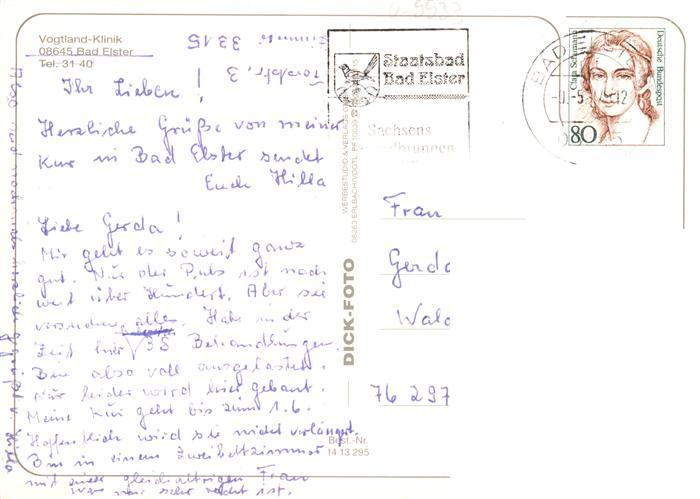 Vogtland-Klinik
08645 Bad Elster
Tel. 31 40
Zimmer 3315
Ihr Lieben!
Herzliche Grüße von meiner
Kur in Bad Elster sendet
Euch Hilla
Liebe Gerda!
Mir geht es soweit ganz
gut. Nur der Puls ist noch
weit über Hundert. Aber sie
versuchen alles. Habe in der
Zeit hier 38 Behandlungen
Bin also voll ausgelastet.
Nur leider wird hier gebaut.
Meine Kur geht bis zum 1.6.
Hoffentlich wird sie nicht verlängert.
Bin in einem Zweibettzimmer
mit einer gleichaltrigen Frau
was mir sehr recht ist.
WERBESTUDIO & VERLAGS
08263 ERLBACH/VOGTL. PF
DICK-FOTO
Best.-Nr.
14 13 295
Staatsbad
Bad Elster
Sachsens
BAD
-5
12
Clara Schumann
Deutsche Bundespost
80
Frau
Gerda
Wald
76 297